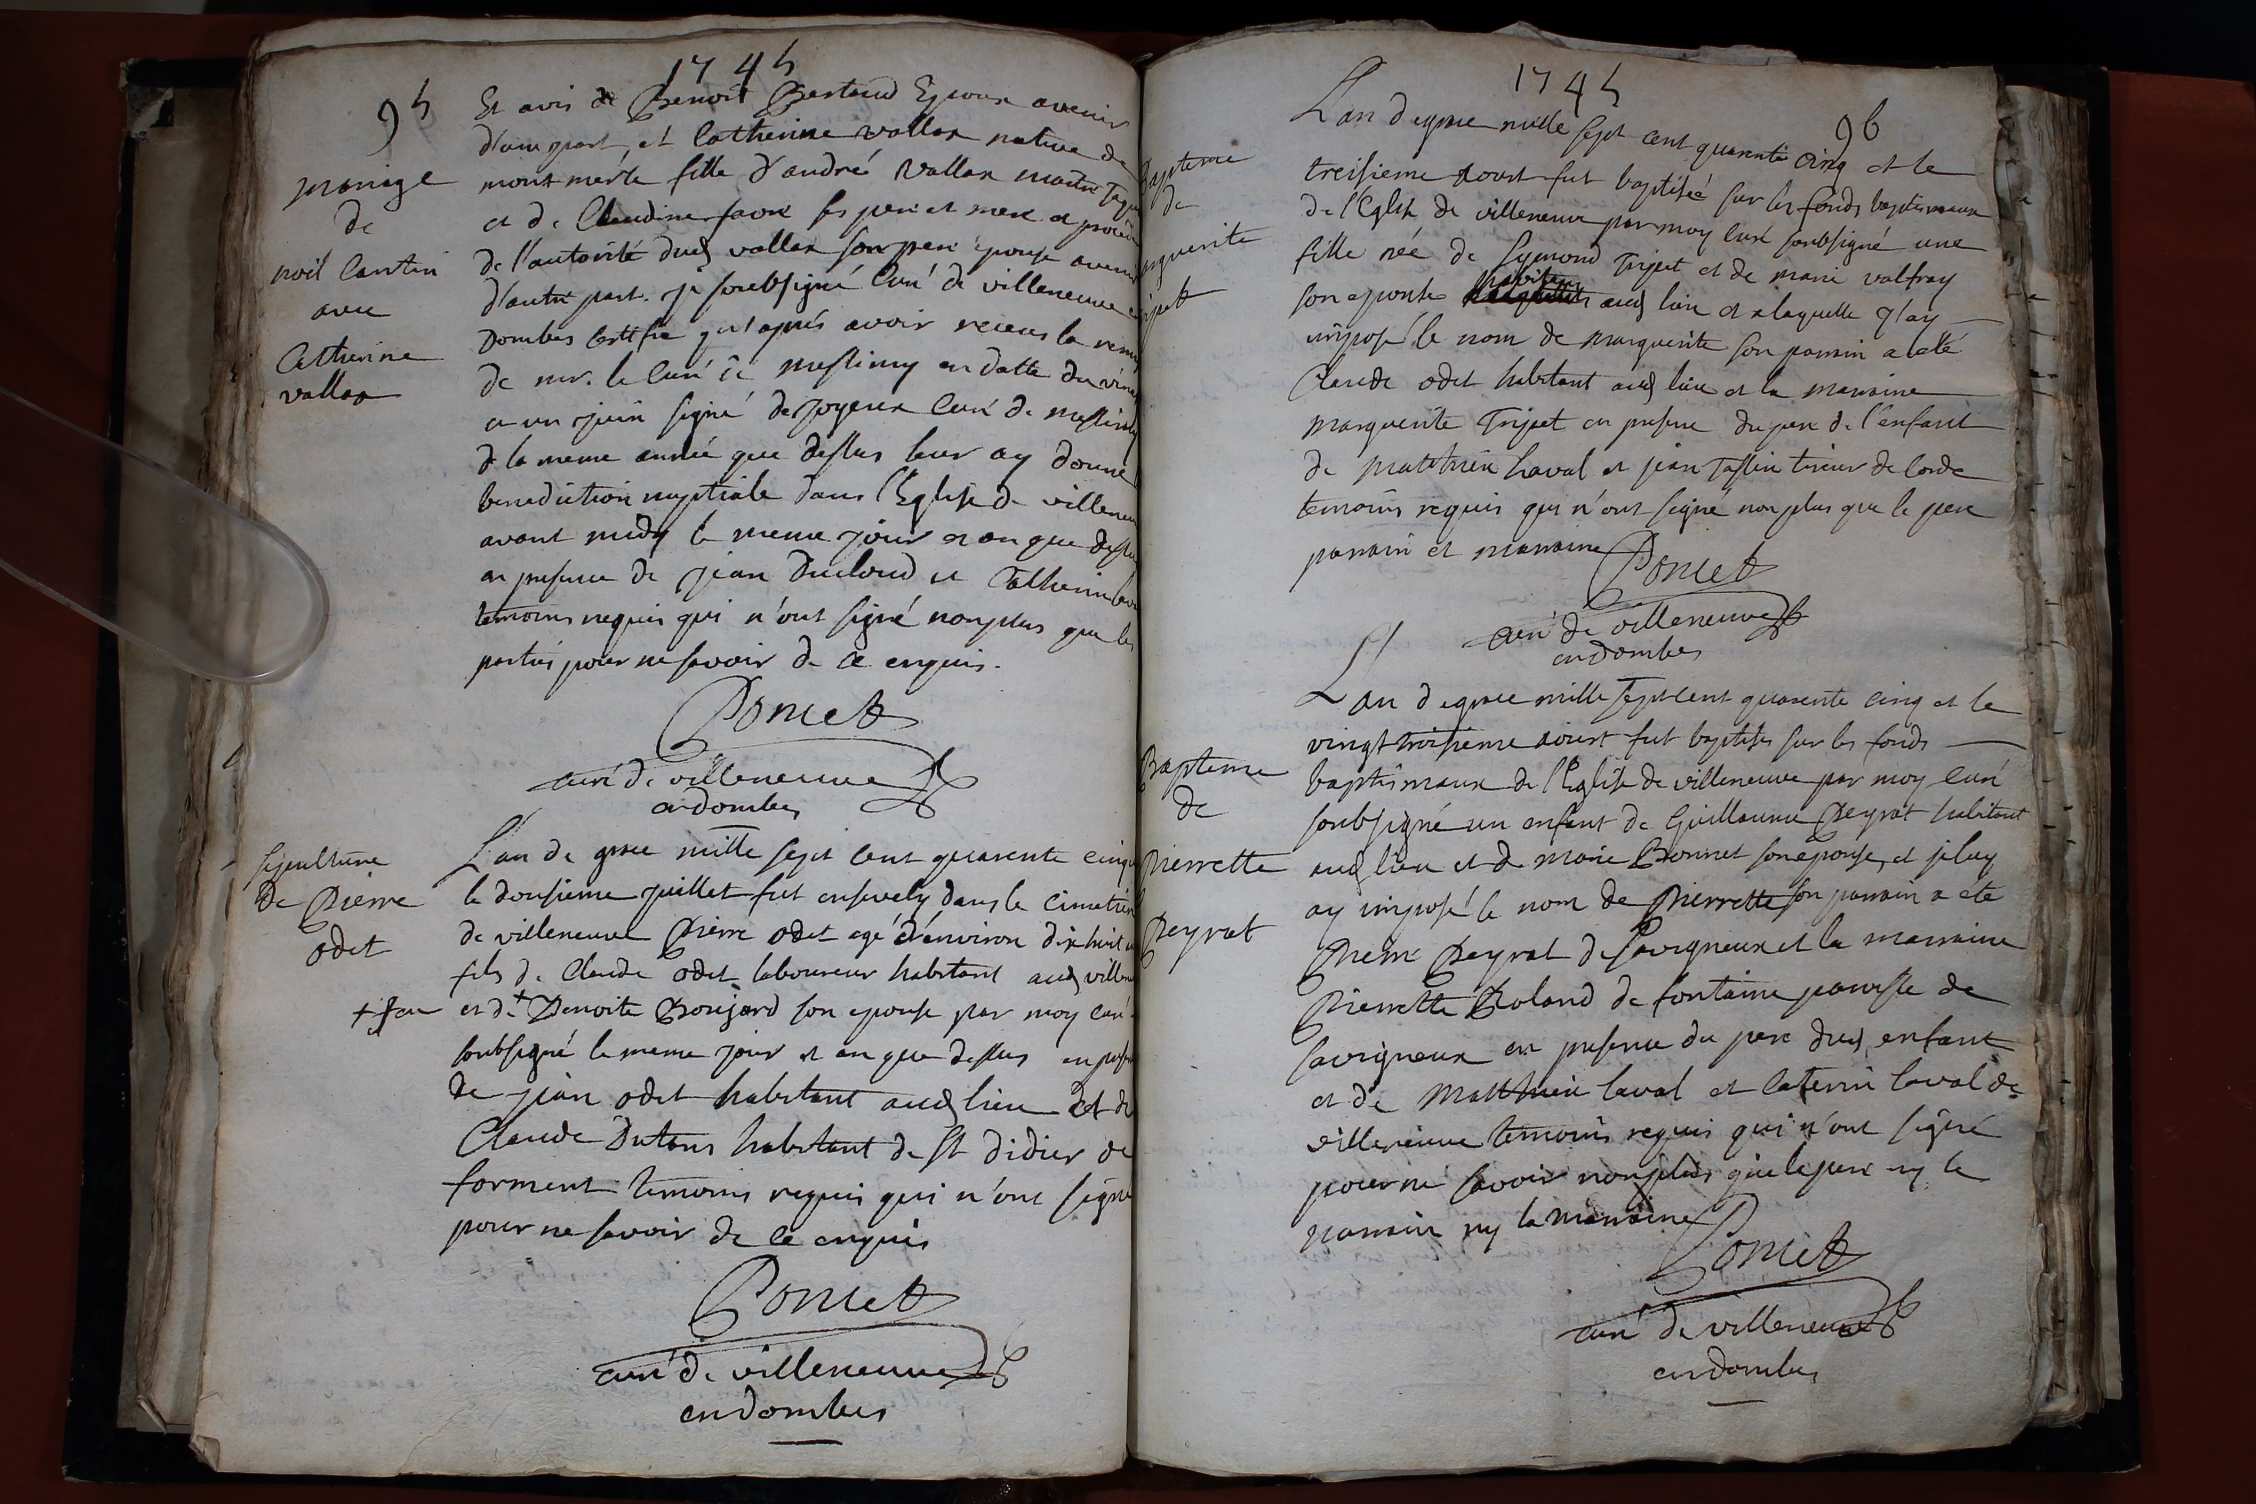 1745
95
mariage
de
noël Cantin
avec
Catherine
vallax
Et avis de Benoit Bertaud Epoux avenir
d'une part, et Catherine vallax native de
montmerle fille d'andré vallax maitre
et de Claudine favre ses pere et mere et
de l'autorité dud vallax son pere epouse avenir
d'autre part. je soubsigné Curé de villeneuve
Dombes Certifie qu'apprés avoir receus la
de mr. le Curé de messimy en datte du
et un juin signé de joyeux Curé de messimy
de la meme année que dessus leur ay donné
benediction nuptiale dans l'Eglise de villeneu
avant midy le meme jour et an que dessu
en presence de jean Ducloud et Catherin
temoins requis qui n'ont signé nonplus que les
parties pour ne savoir de ce enquis.
Poncet
curé de villeneuve
en dombes
sepulture
de Pierre
odet
L'an de grace mille sept cent quarente cinq
le dousieme juillet fut ensevely dans le Cimetier
de villeneuve Pierre odet agé d'environ dix huit
fils de Claude odet laboureur habitant aud villene
+ feu
et de + Benoite Boujard son epouse par moy Curé
soubsigné le meme jour et an que dessus en
de jean odet habitant aud lieu et de
Claude Dutans habitant de St didier de
forment temoins requis qui n'ont signé
pour ne savoir de ce enquis
Poncet
curé de villeneuve
en dombes
1745
96
Bapteme
de
arguerite
ripet
L'an de grace mille sept cent quarente cinq et le
treisieme aoust fut baptiséé sur les fonds baptismaux
de l'Eglise de villeneuve par moy Curé soubsigné une
fille néé de Symond Tripet et de marie valfray
habitans
son epouse aud lieu et a laquelle j'ay
imposé le nom de marguerite son parrain a eté
Claude odet habitant aud lieu et la marraine
marguerite Tripet en presence du pere de l'enfant
de matthieu Laval et jean tireur de Corde
temoins requis qui n'ont signé non plus que le pere
parrain et marraine
Poncet
curé de villeneuve
en dombes
Bapteme
de
Pierrette
Peyrat
L'an de grace mille Sept Cent quarente cinq et le
vingt troisieme aoust fut baptisés sur les fonds
baptismaux de l'Eglise de villeneuve par moy Curé
soubsigné un enfant de Guillaume Peyrat habitant
aud lieu et de marie Bonnet son epouse, et je luy
ay imposé le nom de Pierrette son parrain a ete
Pierre Peyrat de Savigneux et la marraine
Pierrette Roland de fontaine paroisse de
savigneux en presence du pere dud enfant
et de Matthieu laval et Caterin laval de
villeneuve temoins requis qui n'ont signé
pour ne savoir nonplus que le pere ny le
parrain ny la marraine
Poncet
curé de villeneuve
en dombes